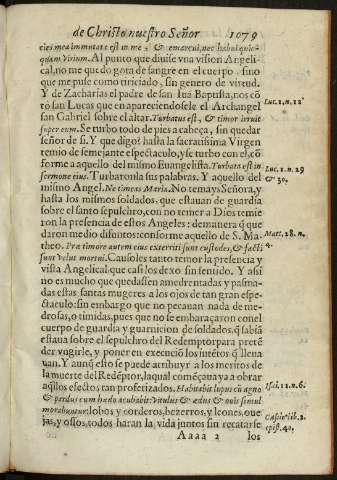 de Christo nuestro Señor 1079
cies mea immutata est in me, & emarcui, nec habui quic-
quam virium. Al punto que diuise vna vision Angeli-
cal, no me quedo gota de sangre en el cuerpo, sino
que me puse como tiriciado, sin genero de virtud.
Y de Zacharias el padre de san Iuā Baptista, nos cō
to san Lucas que en apareciendosele el Archangel
san Gabriel sobre el altar. Turbatus est, & timor irruit
super eum. Se turbo todo de pies a cabeça, sin quedar
señor de si. Y que digo? hasta la sacratisima Virgen
temio de semejante espectaculo, y se turbo con el, cō
forme a aquello del mismo Euangelista. Turbata est in
sermone eius. Turbaronla sus palabras. Y aquello del
mismo Angel. Ne timeas Maria. No temays Señora, y
hasta los mismos soldados, que estauan de guardia
sobre el santo sepulchro, con no temer a Dios temie
ron la presencia de estos Angeles: demanera q̃ que
daron medio difuntos: conforme aquello de S. Ma-
theo. Præ timore autem eius exterriti sunt custodes, & facti
sunt velut mortui. Causoles tanto temor la presencia y
vista Angelical que casi los dexo sin sentido. Y assi
no es mucho que quedassen amedrentadas y pasma-
das estas santas mugeres a los ojos de tan gran espe-
ctaculo: sin embargo que no pecauan nada de me-
drosas, o timidas, pues que no se embaraçaron con el
cuerpo de guardia y guarnicion de soldados, q̃ sabiā
estaua sobre el sepulchro del Redemptor para pretē
der vngirle, y poner en execució los intētos q̃ lleua
uan. Y aunq̃ esto se puede atribuyr a los meritos de
la muerte del Redēptor, la qual començaua ya a obrar
aq̃llos efectos tan profetizados. Habitabit lupus cū agno
& pardus cum hædo accubabit: Vitulus & ædus & ouis simul
morabuntur: lobos y corderos, bezerros, y leones, oue
jas, y ossos, todos haran la vida juntos sin recatarse
Aaaa 2 los
Luc. 1. n. 12
Luc. 1. n. 29
& 30.
Matt. 28. n.
4.
Isai. 11. n. 6.
lib. 2.
epist. 40,